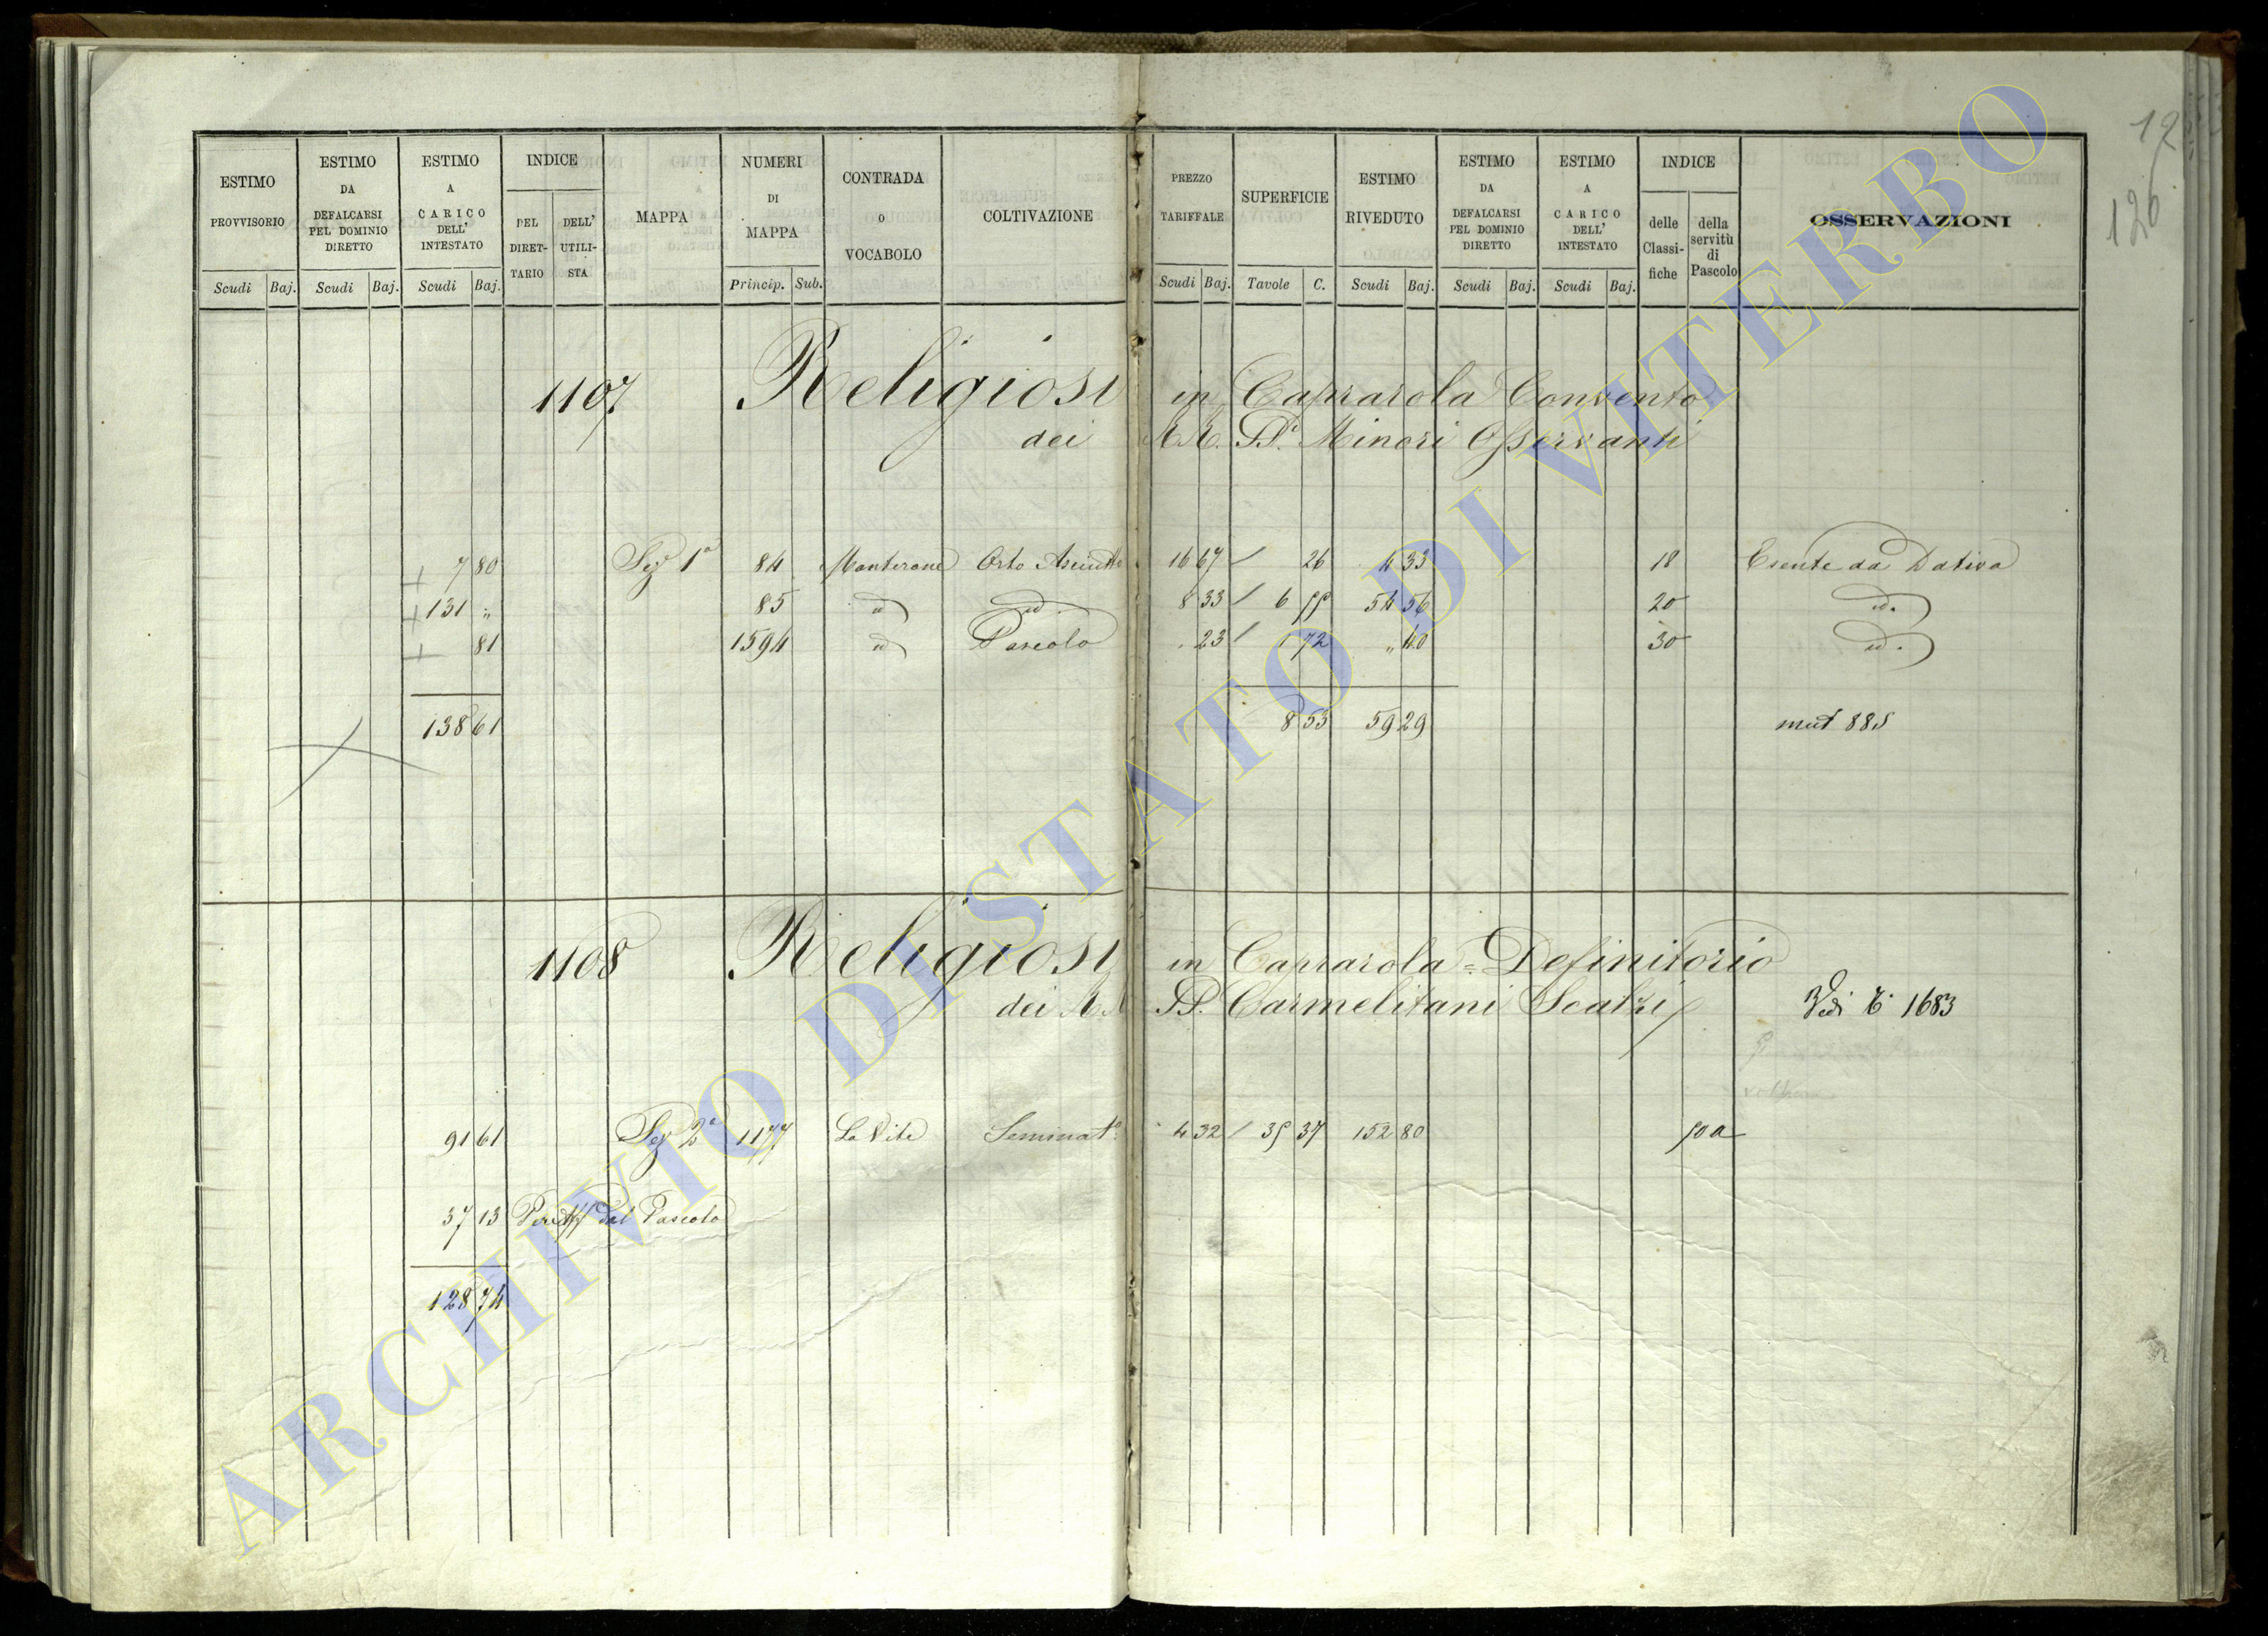 12
126
ESTIMO PROVVISORIO Scudi Baj.
ESTIMO DA DEFALCARSI PEL DOMINIO DIRETTO Scudi Baj.
ESTIMO A CARICO DELL' INTESTATO Scudi Baj.
INDICE DEL DIRETTARIO DELL' UTILISTA
MAPPA
NUMERI DI MAPPA Princip. Sub.
CONTRADA O VOCABOLO
COLTIVAZIONE
PREZZO TARIFFALE Scudi Baj.
SUPERFICIE Tavole C.
ESTIMO RIVEDUTO Scudi Baj.
ESTIMO DA DEFALCARSI PEL DOMINIO DIRETTO Scudi Baj.
ESTIMO A CARICO DELL' INTESTATO Scudi Baj.
INDICE delle Classifiche della servitù di Pascolo
OSSERVAZIONI
1107 Religiosi in Caprarola Convento
dei RR. PP. Minori Osservanti
7 80 Sez 1ª 84 Monterone Orto Asciutto 16 67 26 4 33 18 Esente da Dativa
131 " 85 id id 8 33 6 55 54 56 20 id.
81 1594 id Pascolo . 23 1 72 " 40 30 id.
138 61 8 53 59 29 mut 885
1108 Religiosi in Caprarola = Definitorio
dei RR PP. Carmelitani Scalzi Vedi 1683
91 61 Sez 2ª 1177 La Vite Seminat.º 4 32 35 37 152 80 50 a
37 13 dal Pascolo
128 74
ARCHIVIO DI STATO DI VITERBO